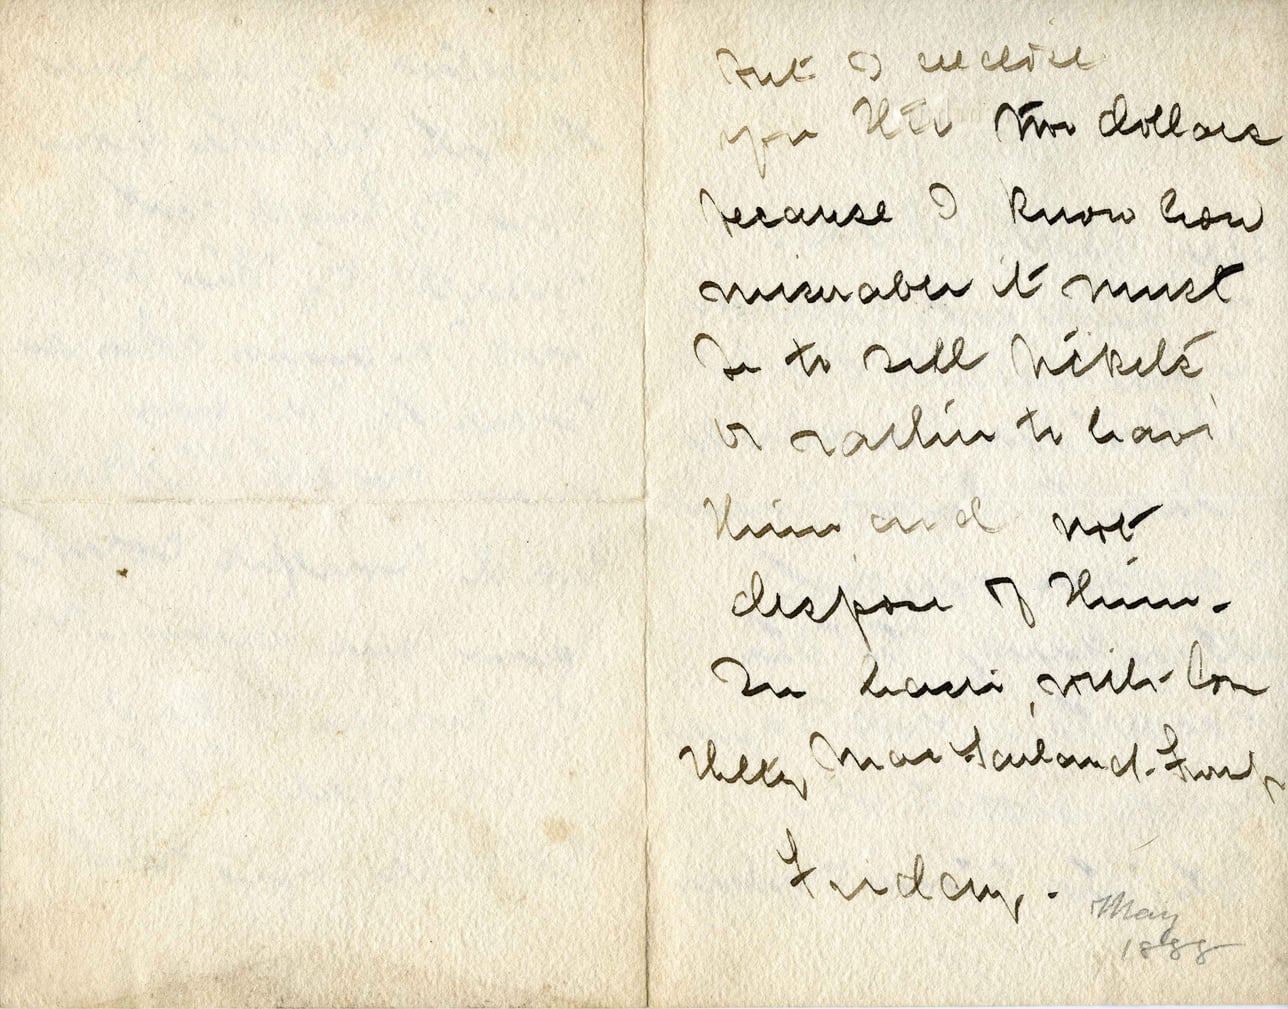 but I enclose
you the two dollars
because I know how
miserable it must
be to sell tickets
or rather to have
them and not
dispose of them.
In haste, with love
Mary MacFarland
Friday.
May
1888